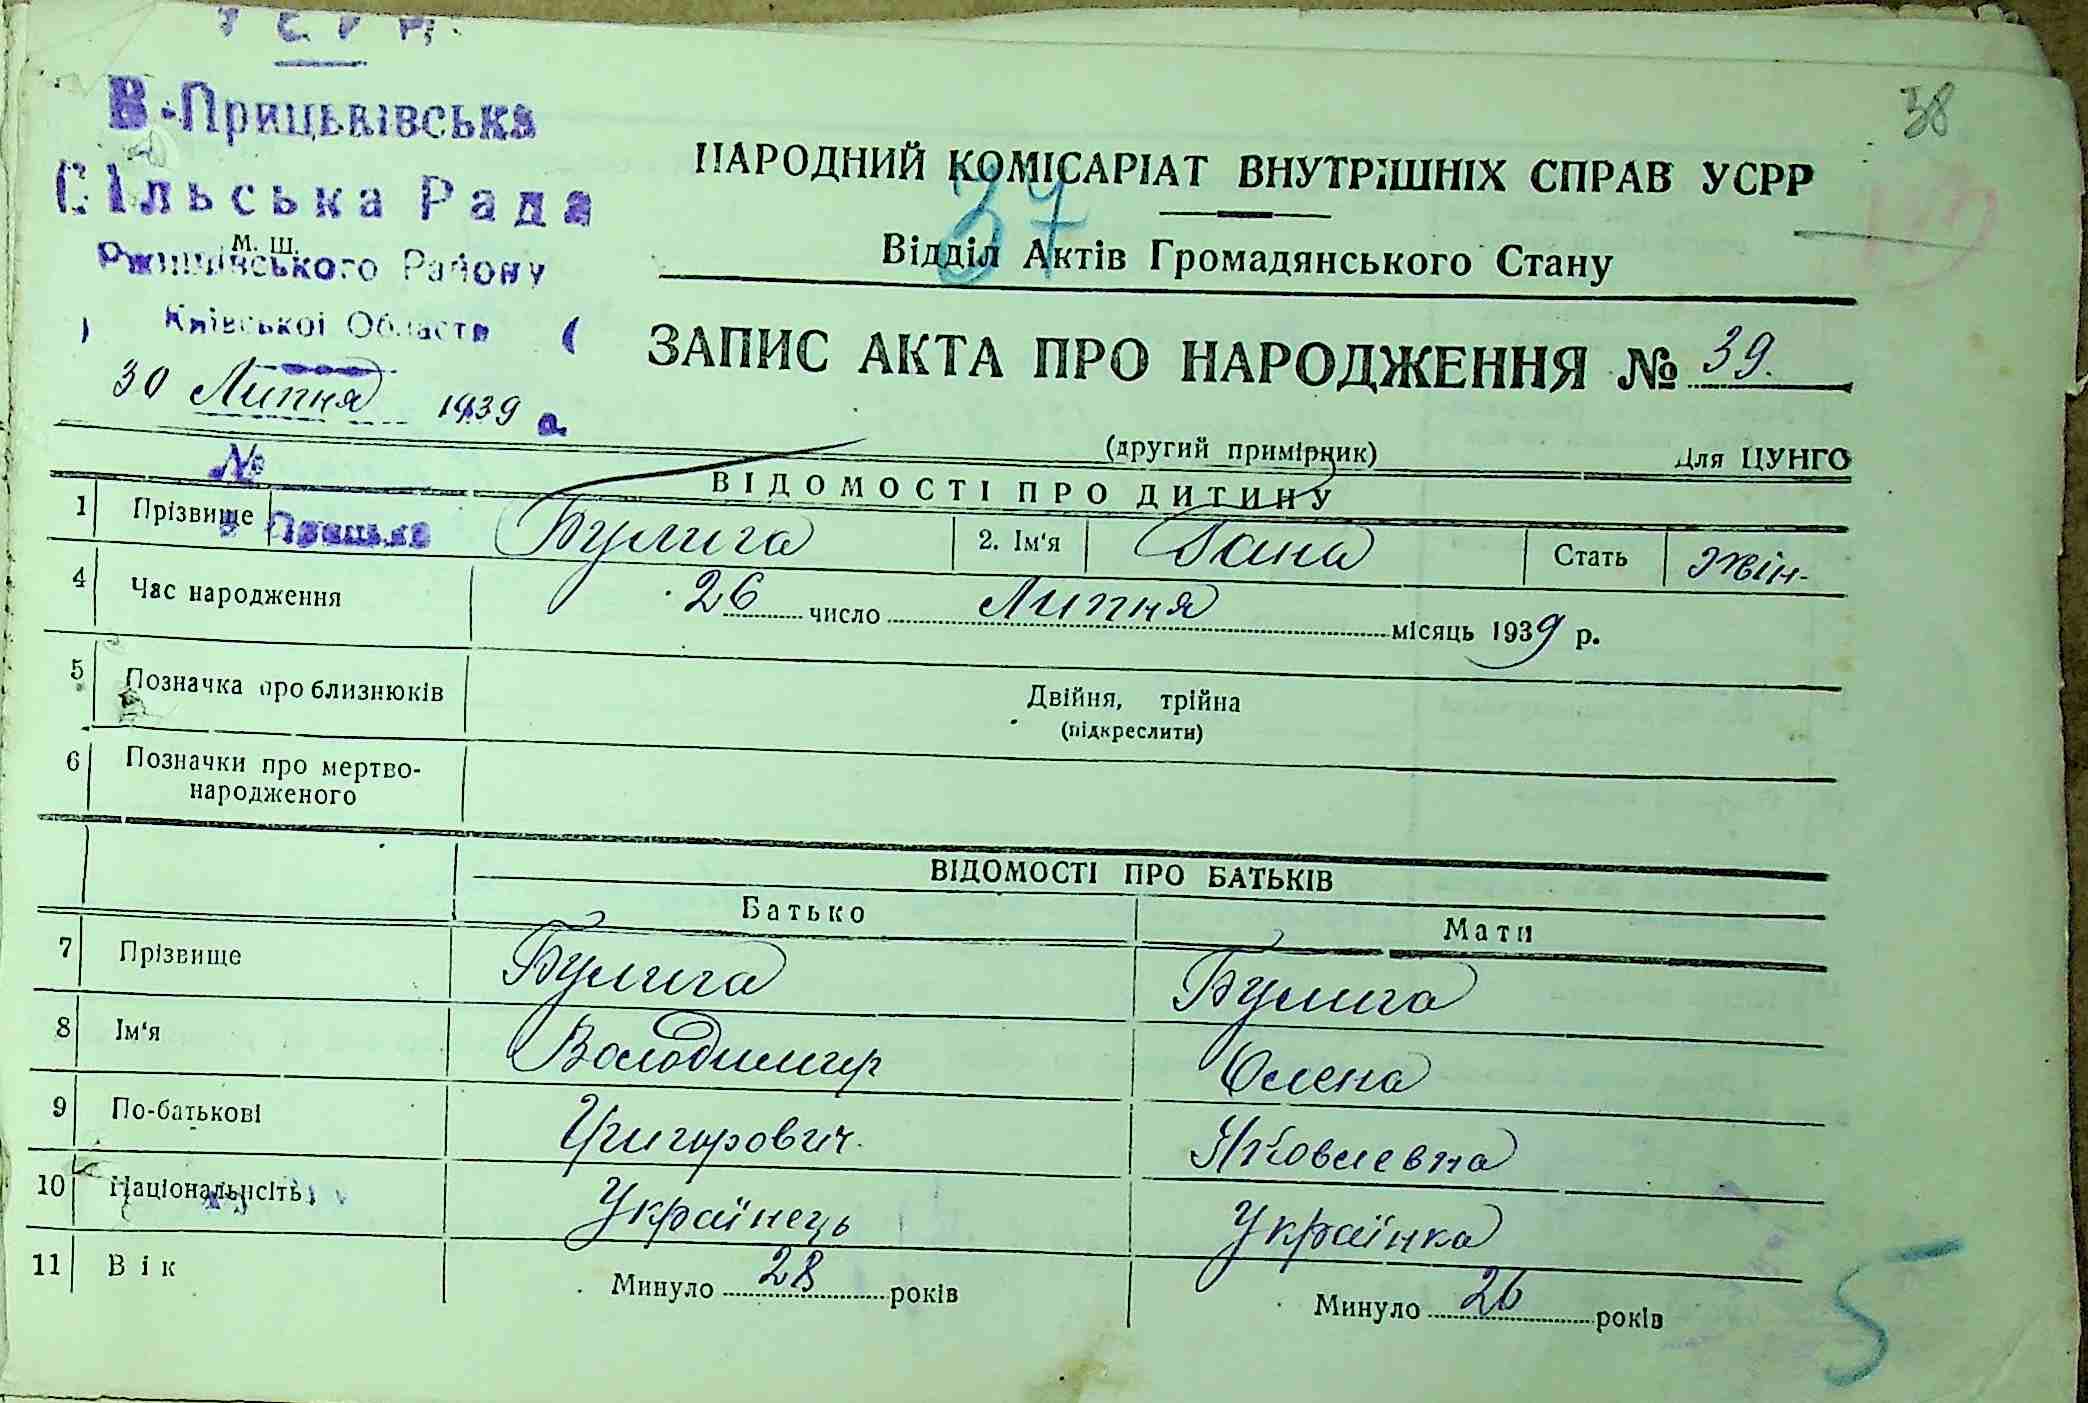 УСРР
В-Прицьківська
Сільська Рада
м. ш.
Ржищівського Району
Київської Області
30 Липня 1939 р.
№
с. Прицьки
38
37
НАРОДНИЙ КОМІСАРІАТ ВНУТРІШНІХ СПРАВ УСРР
Відділ Актів Громадянського Стану
ЗАПИС АКТА ПРО НАРОДЖЕННЯ № 39.
(другий примірник) Для ЦУНГО
ВІДОМОСТІ ПРО ДИТИНУ
1 Прізвище Булига 2. Ім'я Гана Стать жін.
4 Час народження 26 число Липня місяць 1939 р.
5 Позначка про близнюків Двійня, трійна
(підкреслити)
6 Позначки про мертво-
народженого
ВІДОМОСТІ ПРО БАТЬКІВ
Батько Мати
7 Прізвище Булига Булига
8 Ім'я Володимир Олена
9 По-батькові Григорович. Яковлевна
10 Національність Українець Українка
11 Вік Минуло 28 років Минуло 26 років
5